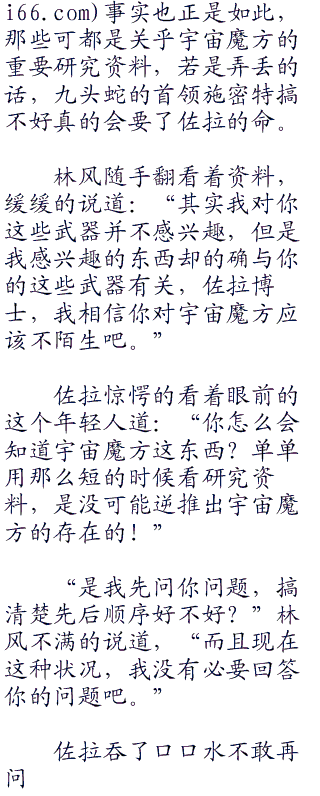 i66.com)事实也正是如此，
那些可都是关乎宇宙魔方的
重要研究资料，若是弄丢的
话，九头蛇的首领施密特搞
不好真的会要了佐拉的命。
林风随手翻看着资料，
缓缓的说道：“其实我对你
这些武器并不感兴趣，但是
我感兴趣的东西却的确与你
的这些武器有关，佐拉博
士，我相信你对宇宙魔方应
该不陌生吧。”
佐拉惊愕的看着眼前的
这个年轻人道：“你怎么会
知道宇宙魔方这东西？单单
用那么短的时候看研究资
料，是没可能逆推出宇宙魔
方的存在的！”
“是我先问你问题，搞
清楚先后顺序好不好？”林
风不满的说道，“而且现在
这种状况，我没有必要回答
你的问题吧。”
佐拉吞了口口水不敢再
问